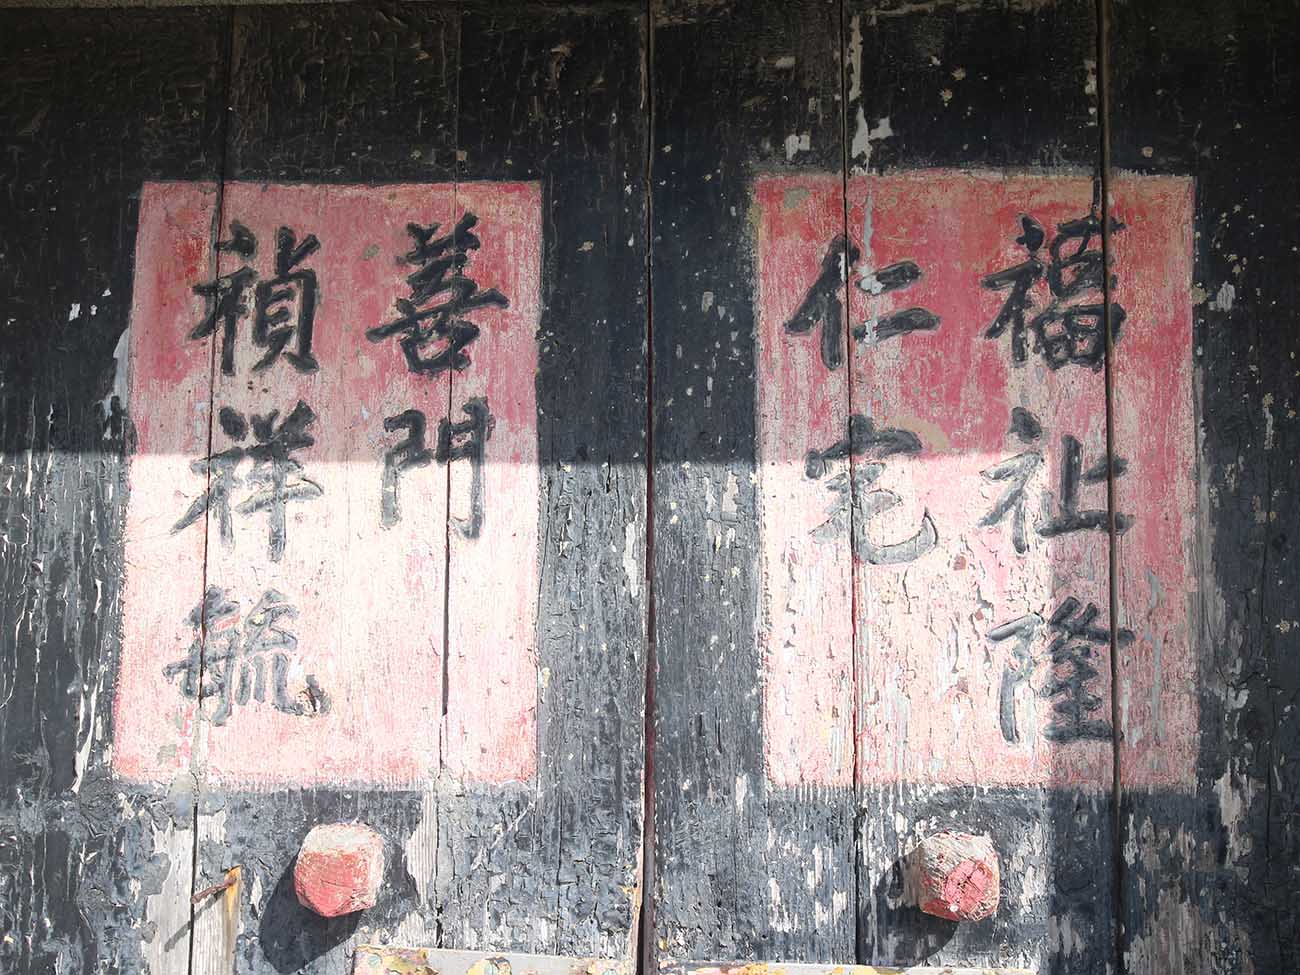 福祉隆
仁宅
禎祥毓
善門